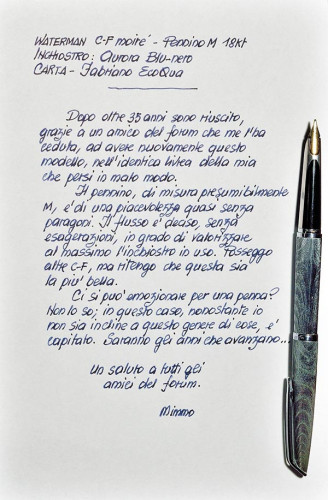 WATERMAN C-F moiré - Pennino M 18Kt
INCHIOSTRO: Aurora Blu-nero
CARTA - Fabriano EcoQua
Dopo oltre 35 anni sono riuscito,
grazie a un amico del forum che me l'ha
ceduta, ad avere nuovamente questo
modello, nell'identica livrea della mia
che persi in malo modo.
Il pennino, di misura presumibilmente
M, è di una piacevolezza quasi senza
paragoni. Il flusso è deciso, senza
esagerazioni, in grado di valorizzare
al massimo l'inchiostro in uso. Posseggo
altre C-F, ma ritengo che questa sia
la più bella.
Ci si può emozionare per una penna?
Non lo so; in questo caso, nonostante io
non sia incline a questo genere di cose, è
capitato. Saranno gli anni che avanzano...
Un saluto a tutti gli
amici del forum.
Mimmo